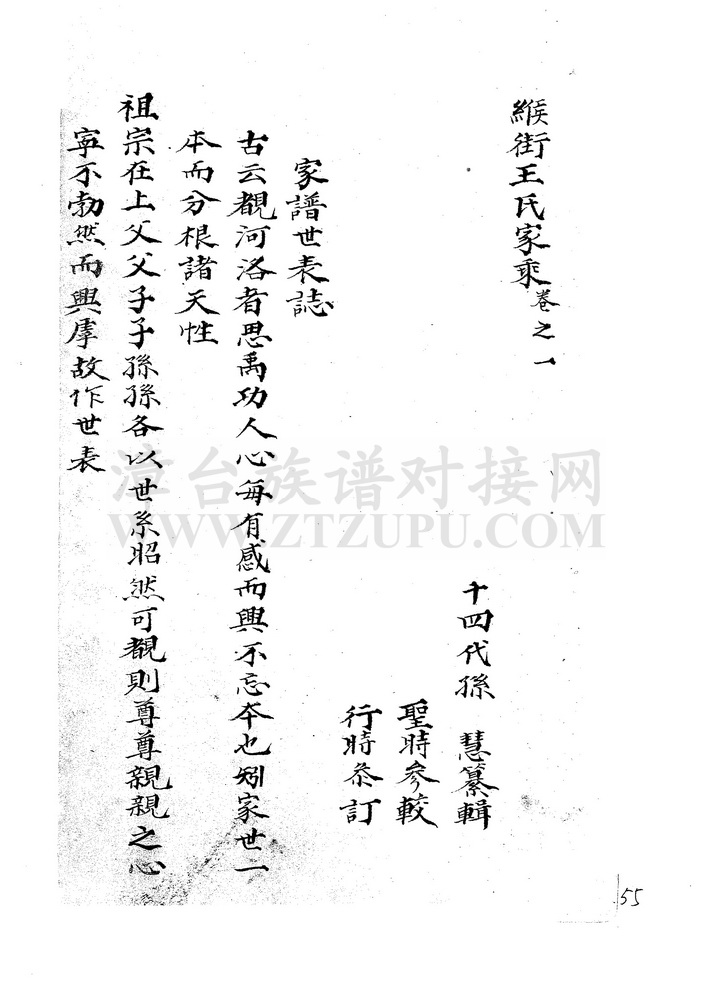 緱街王氏家乘卷之一
十四代孫 慧纂輯
聖時參較
行時叅訂
家譜世表誌
古云覩河洛者思禹功人心每有感而興不忘本也矧家世一
本而分根諸天性
祖宗在上父父子子孫孫各以世系昭然可覩則尊尊親親之心
寧不勃然而興虖故作世表
漳台族谱对接网
WWW.ZTZUPU.COM
55